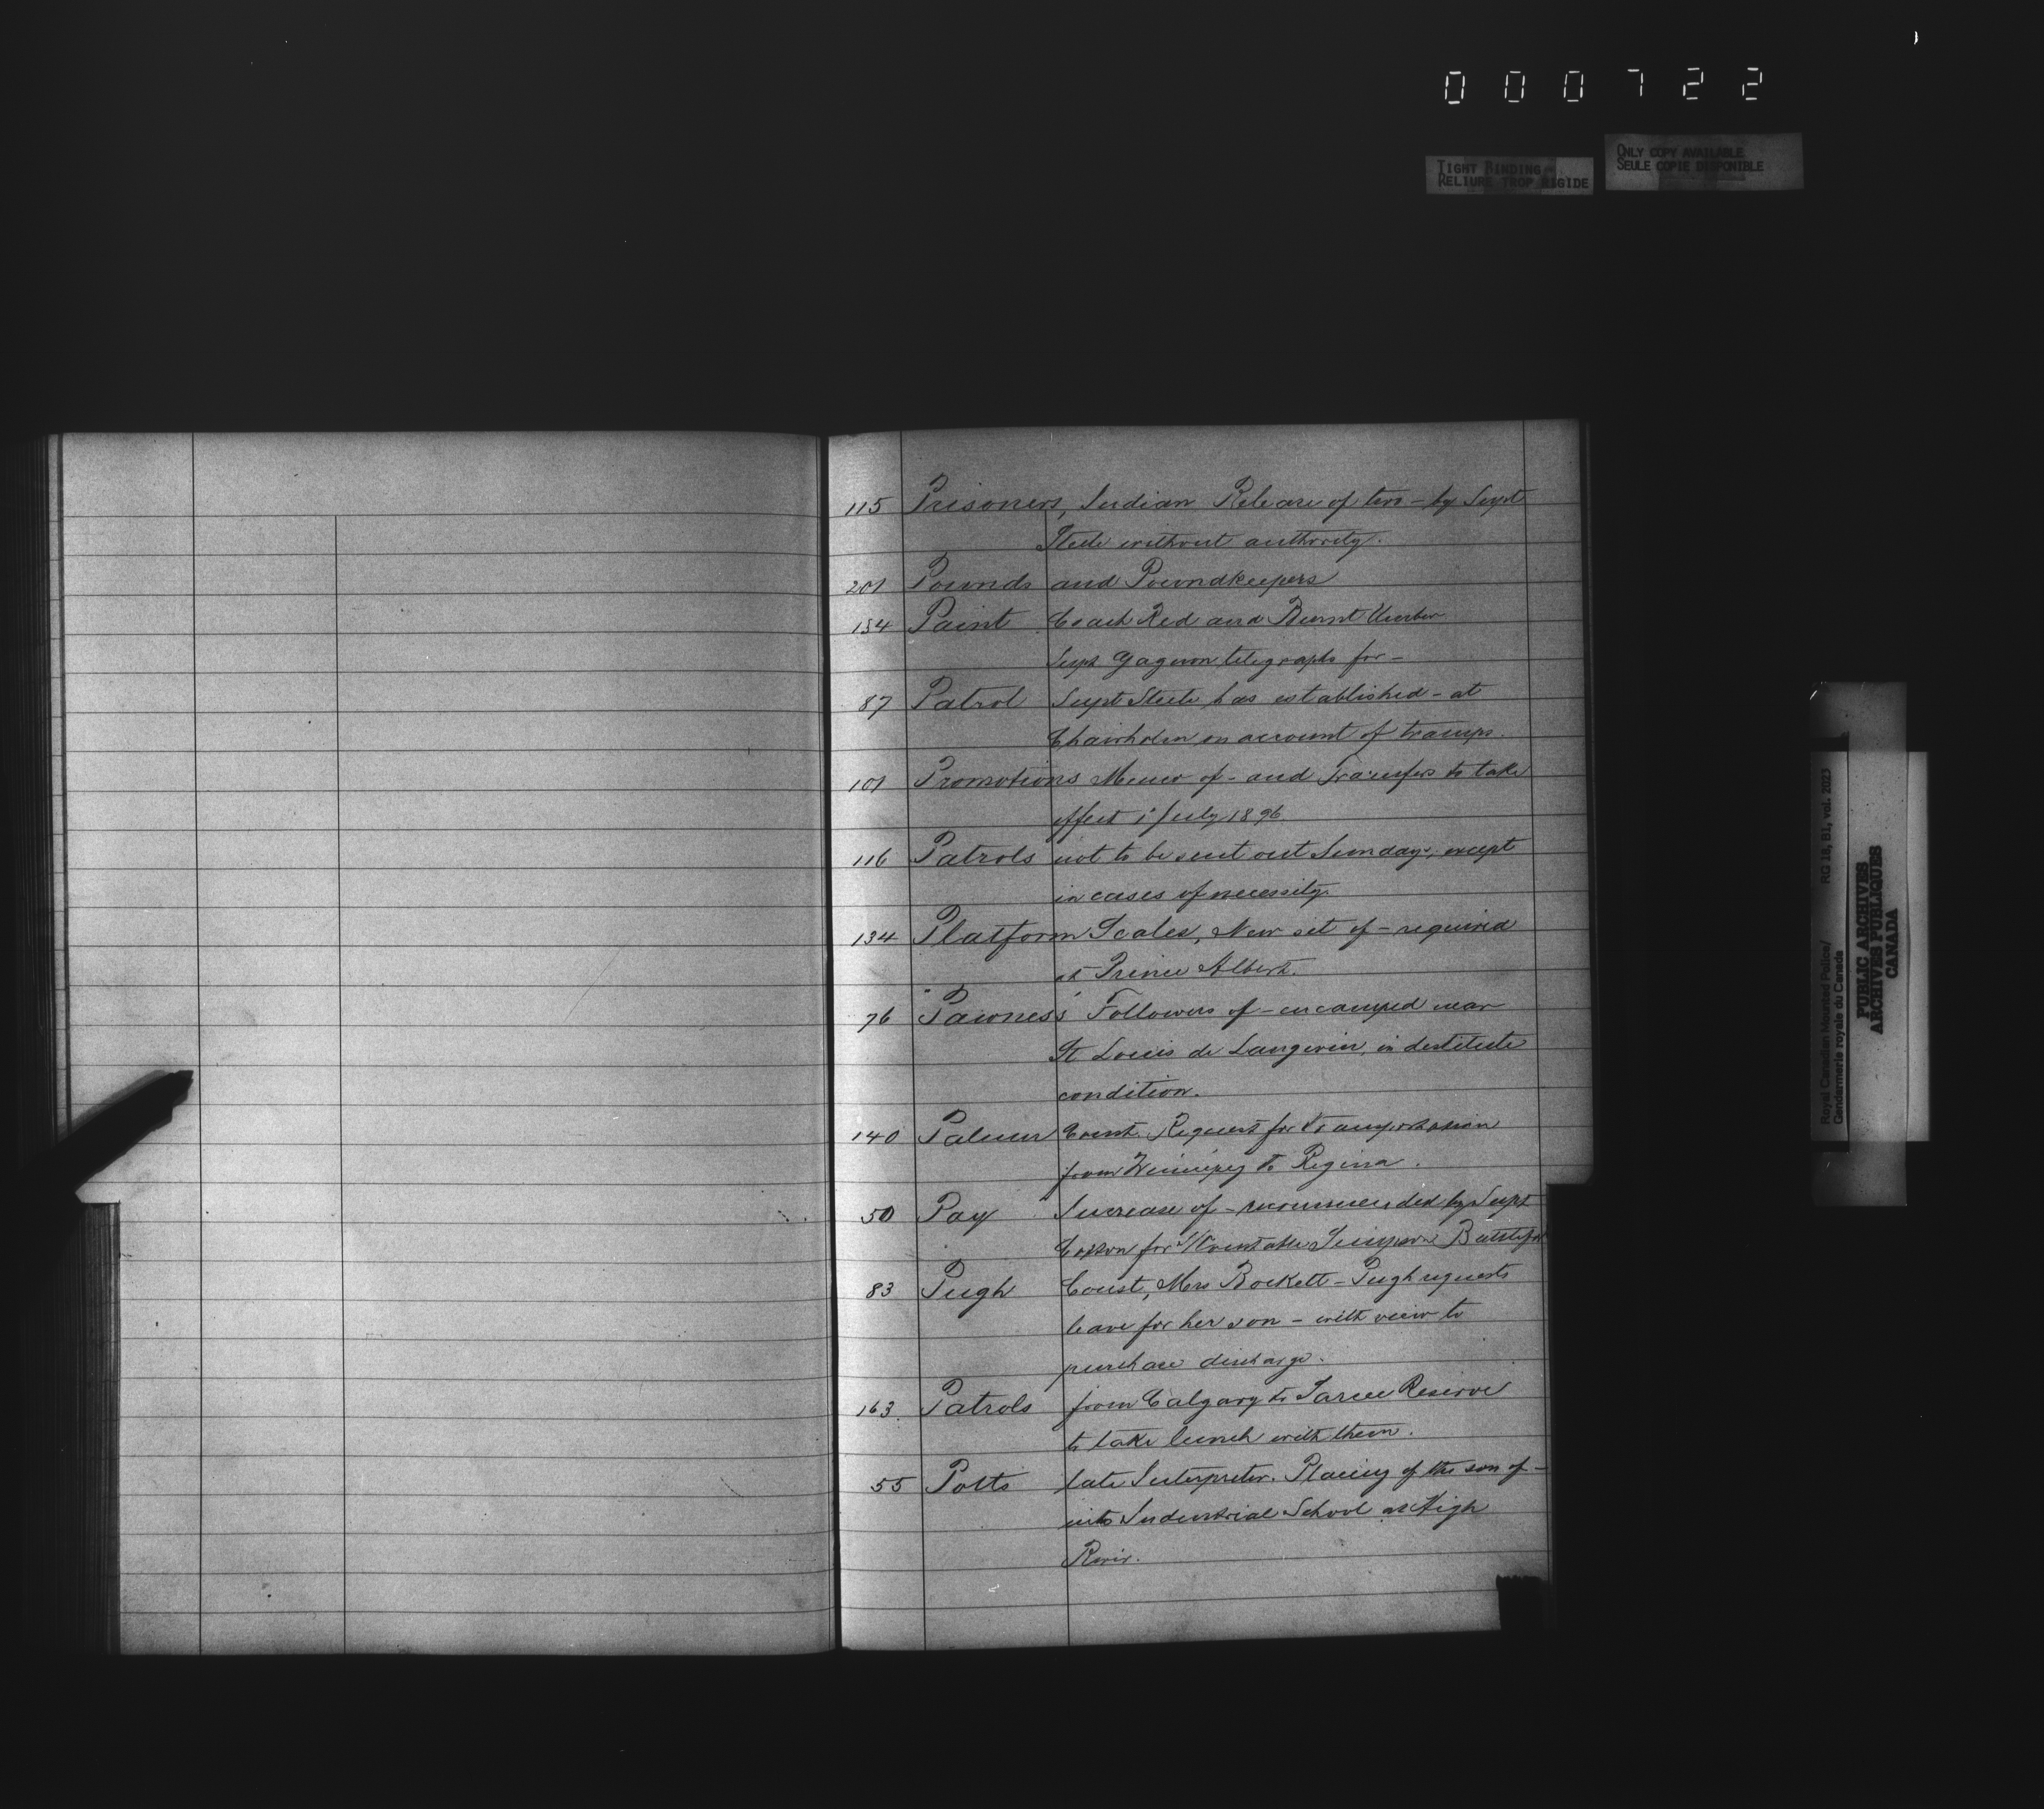 000722
TIGHT BINDING
RELIURE TROP RIGIDE
ONLY COPY AVAILABLE
SEULE COPIE DISPONIBLE
115 Prisoners, Indian Release of two - by Supt
Steele without authority.
201 Pounds and Poundkeepers
134 Paint Coach Red and Burnt Umber
Supt Gagnon telegraphs for -
87 Patrol Supt Steele has established - at
on account of tramps.
101 Promotions Memo of - and Transfers to take
effect 1st July 1896.
116 Patrols not to be sent out Sundays, except
in cases of necessity.
134 Platform Scales, New set of - required
at Prince Albert.
76 "Pawness" Followers of - encamped near
St Louis de Langevin, in destitute
condition.
140 Palmer Const. Request for transportation
from Winnipeg to Regina.
50 Pay Increase of - recommended by Supt
Cotton for S/Constable Simpson Battleford
83 Pugh Const, Mrs Bockett - Pugh requests
leave for her son - with view to
purchase discharge.
163. Patrols from Calgary to Sarcee Reserve
to take lunch with them.
55 Potts late Interpreter. Placing of the son of -
into Industrial School at High
River.
Royal Canadian Mounted Police/ RG 18, B1, vol. 2023
Gendarmerie royale du Canada
PUBLIC ARCHIVES
ARCHIVES PUBLIQUES
CANADA